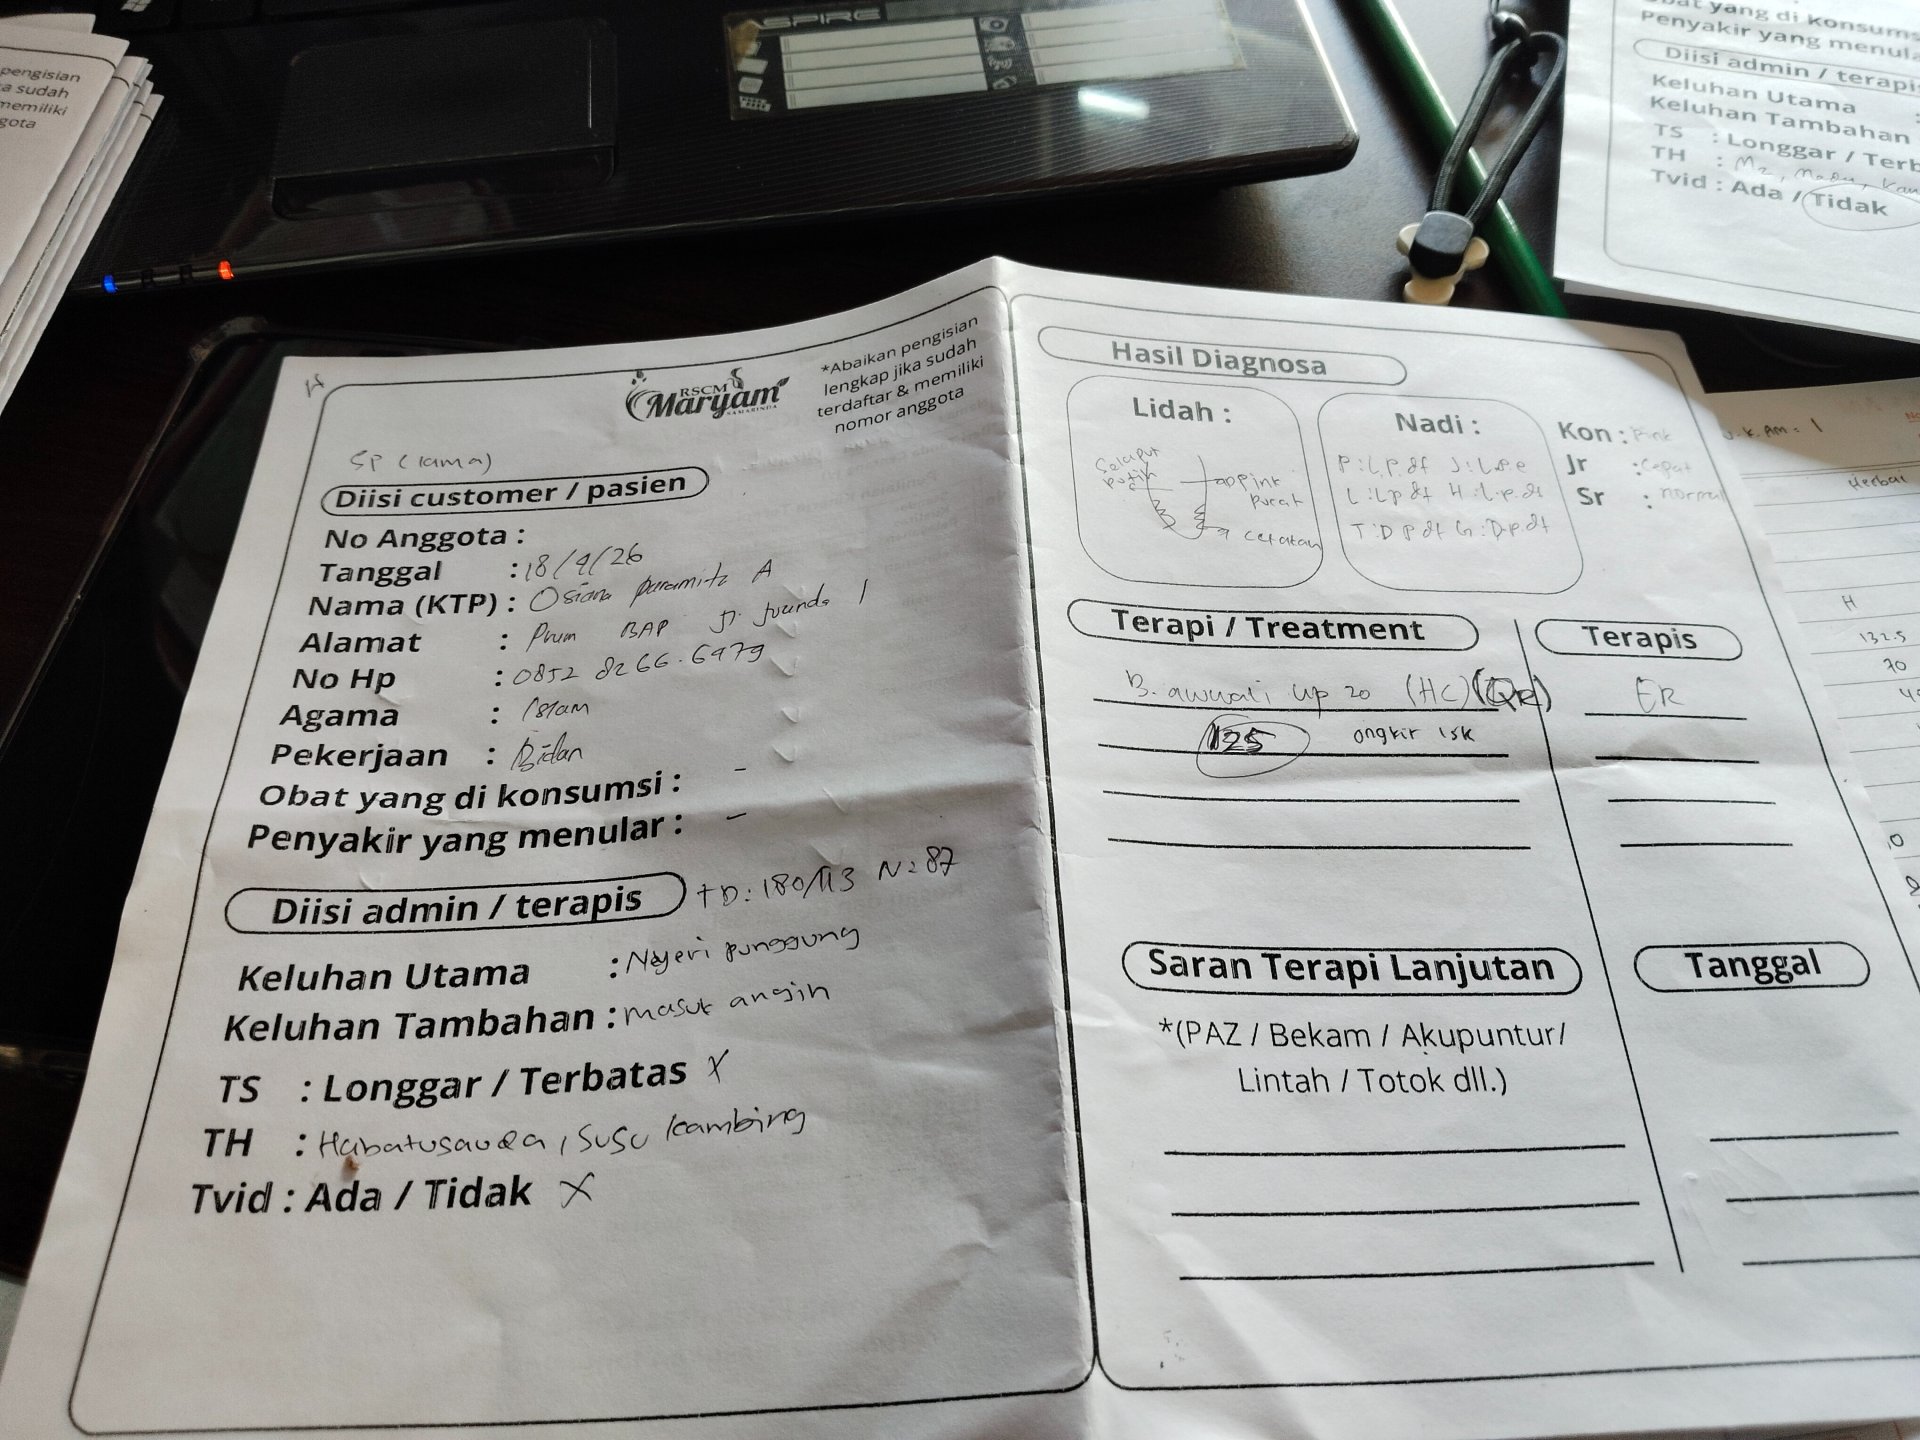 ASPIRE
pengisian
a sudah
memiliki
gota
Obat yang di konsums
Penyakir yang menula
Diisi admin / terapis
Keluhan Utama :
Keluhan Tambahan
TS : Longgar / Terb
TH : Mz, Madu, Kam
Tvid : Ada / Tidak
RSCM
Maryam
SAMARINDA
*Abaikan pengisian
lengkap jika sudah
terdaftar & memiliki
nomor anggota
SP (lama)
Diisi customer / pasien
No Anggota :
Tanggal : 18/4/26
Nama (KTP) : Osiana paramita A
Alamat : Prum BAP jl. juanda 1
No Hp : 0852 8266.6979
Agama : Islam
Pekerjaan : Bidan
Obat yang di konsumsi : -
Penyakir yang menular : -
Diisi admin / terapis TD: 180/113 N: 87
Keluhan Utama : Nyeri punggung
Keluhan Tambahan : masuk angin
TS : Longgar / Terbatas X
TH : Habatusauda, susu kambing
Tvid : Ada / Tidak X
Hasil Diagnosa
Lidah :
Selaput
putih
pink
pucat
cetakan
Nadi :
P : L.P.df J : L.P.e
L : L.p df H : L.p.df
T : D P df G : D.p.df
Kon : Pink
Jr : Cepat
Sr : normal
Terapi / Treatment
Terapis
B. awwali up 20 (HC) (QR)
ER
125 ongkir 15k
Saran Terapi Lanjutan
Tanggal
*(PAZ / Bekam / Akupuntur/
Lintah / Totok dll.)
Herbal
H
132.5
70